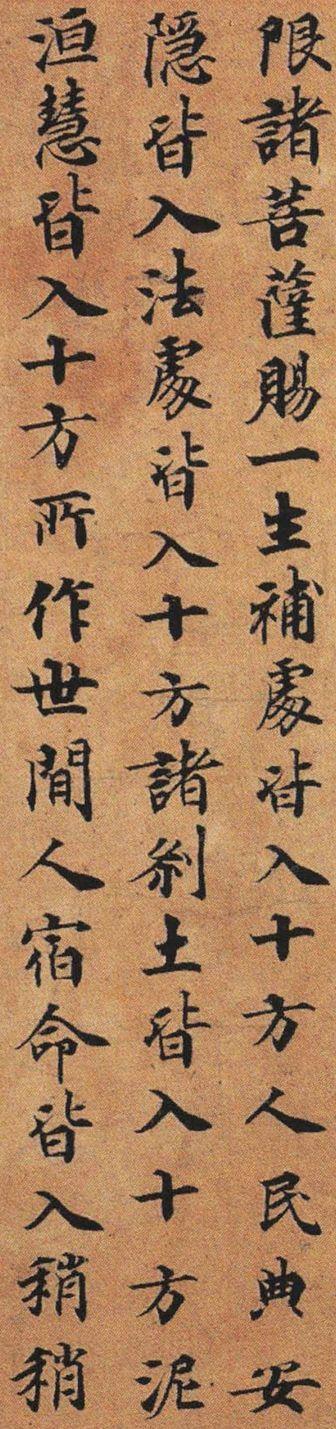 限諸菩薩賜一生補處皆入十方人民典安
隱皆入法處皆入十方諸剎土皆入十方泥
洹慧皆入十方所作世間人宿命皆入稍稍